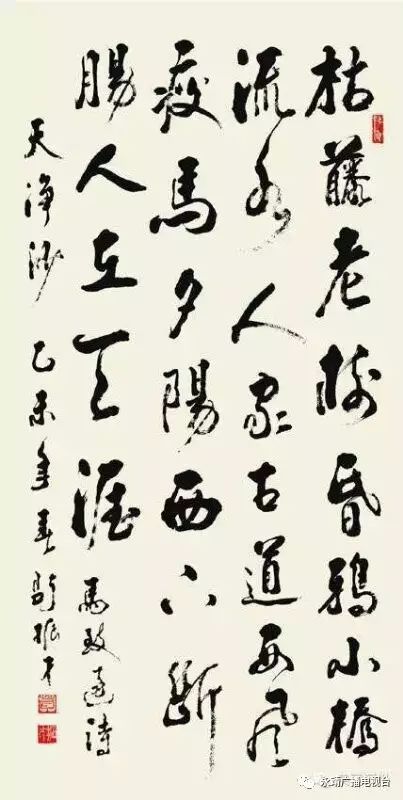 枯藤老樹昏鴉小橋
流水人家古道西風
瘦馬夕陽西下斷
腸人在天涯 馬致遠詩
天淨沙 乙未年春 振才
永靖广播电视台